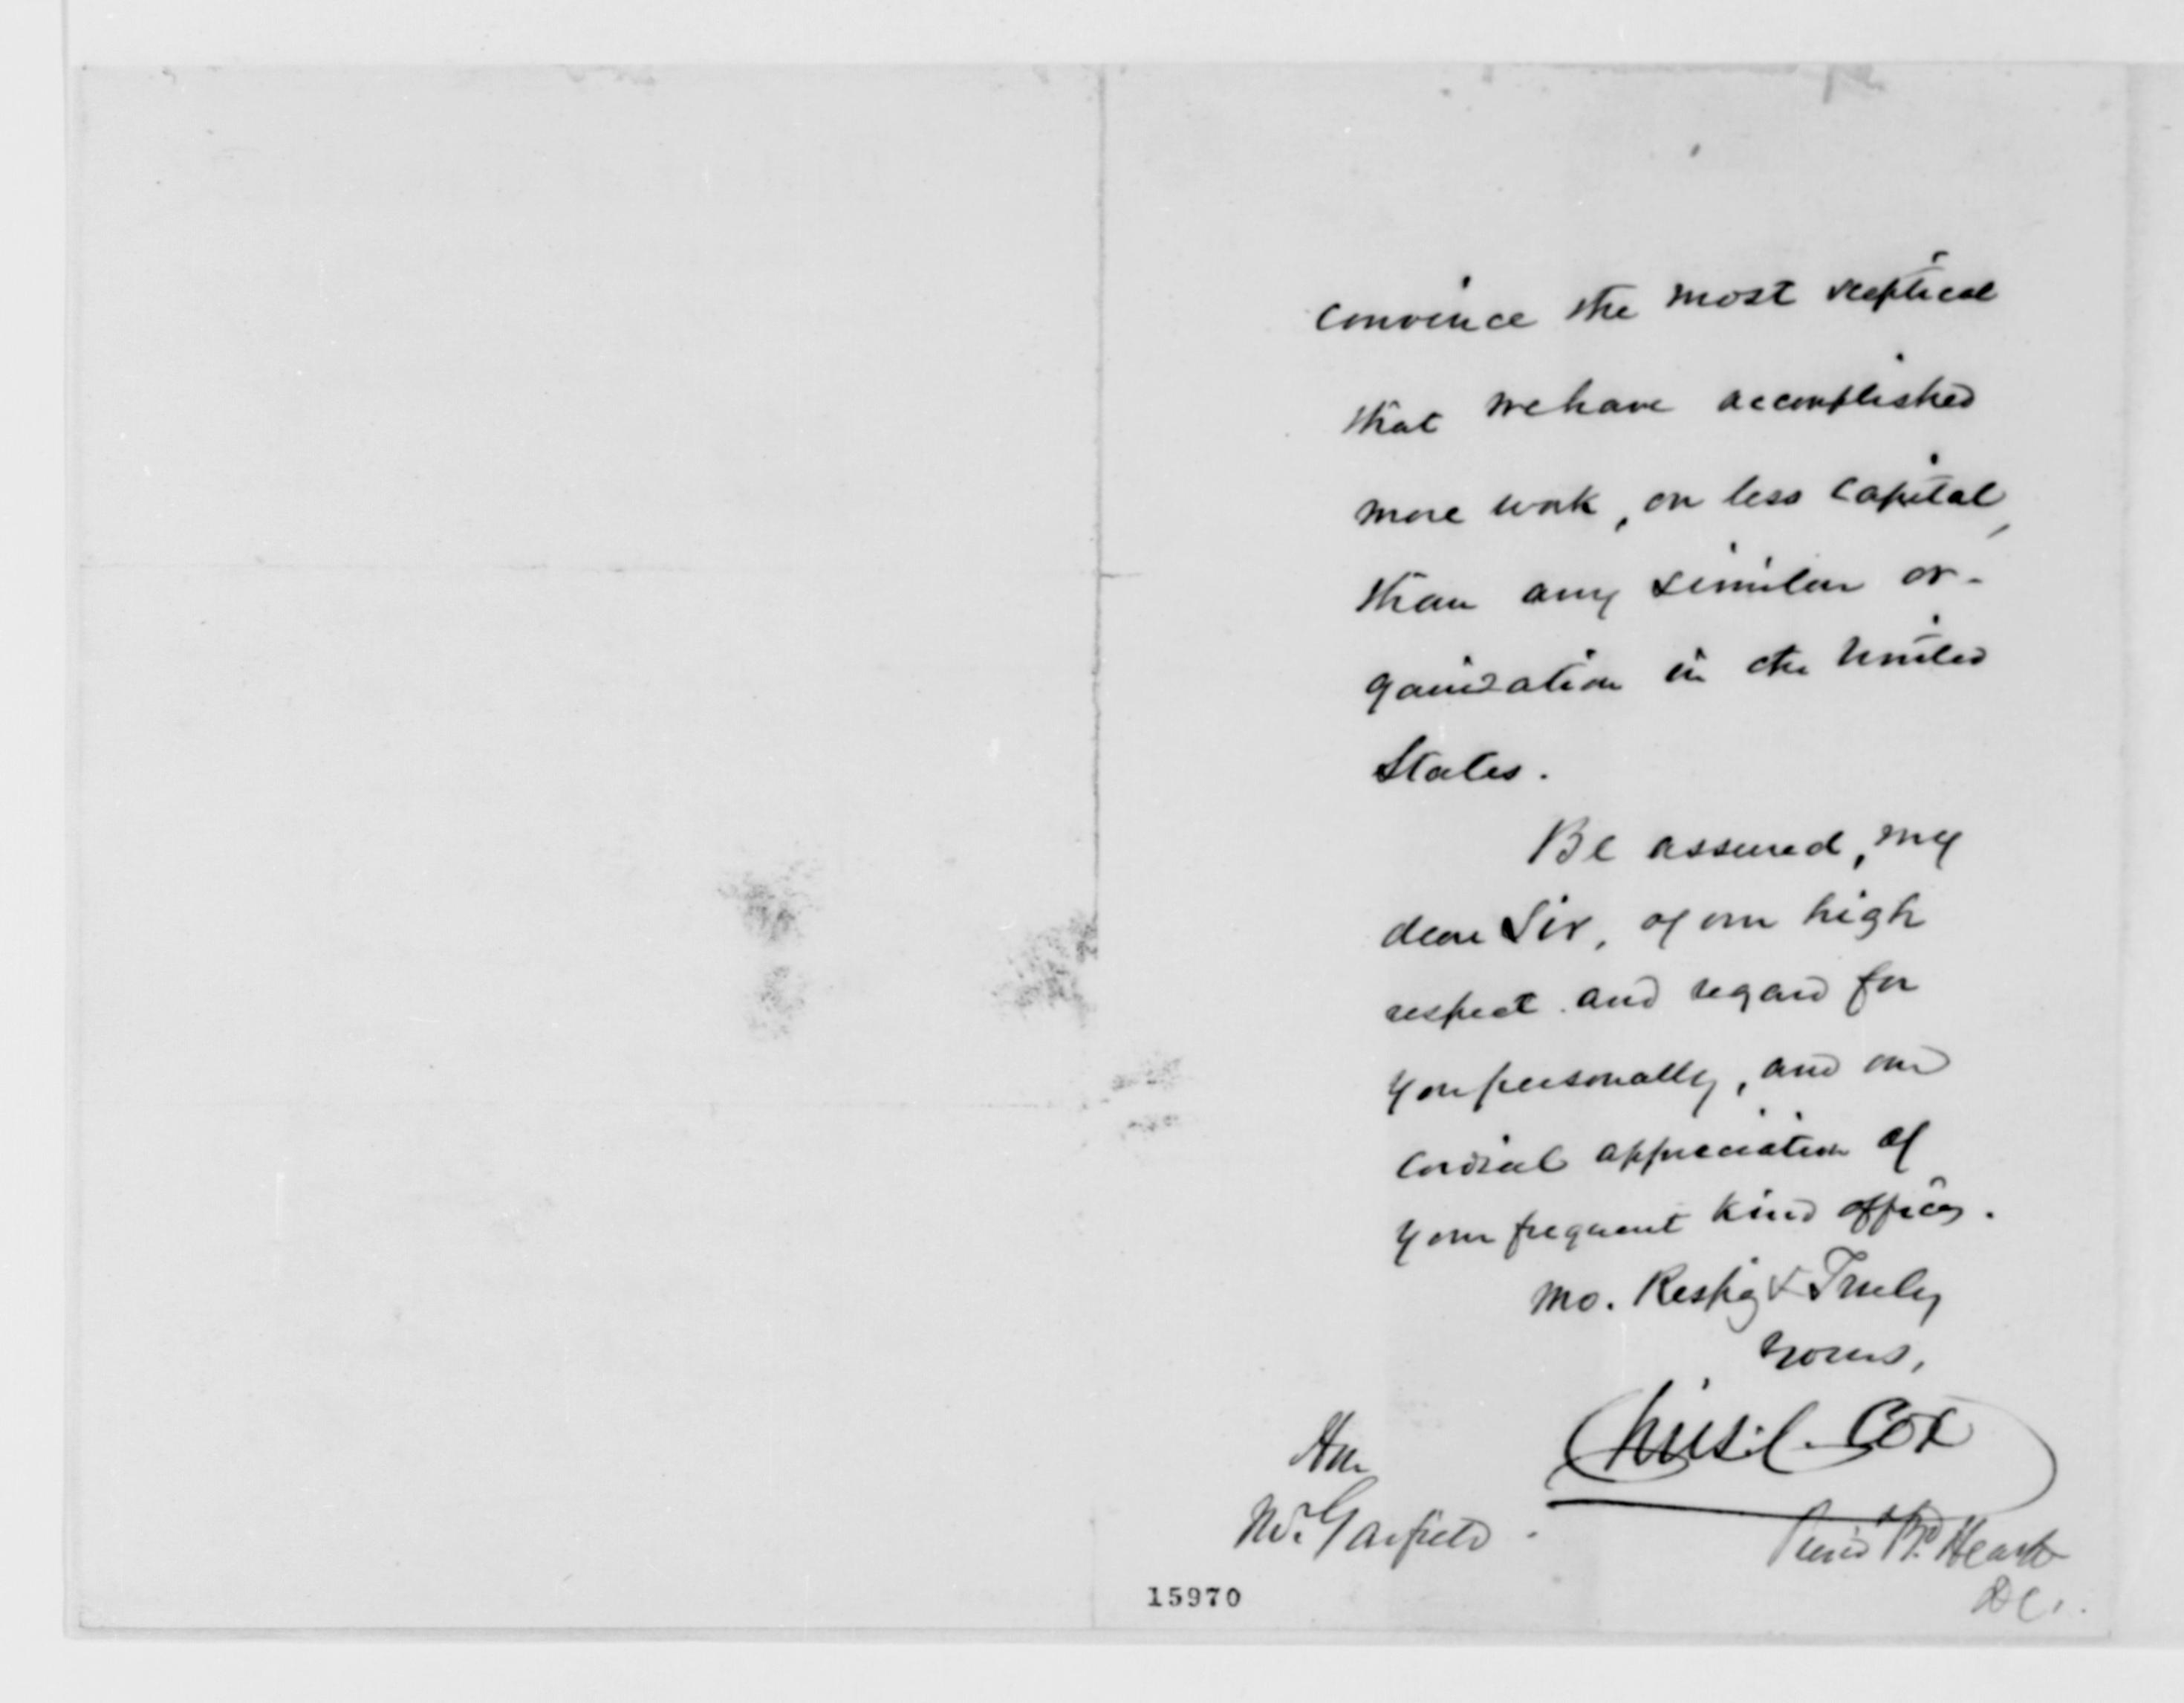 convince the most sceptical
that we have accomplished
more work, on less capital,
than any similar or-
ganization in the United
States.
Be assured, my
dear Sir, of our high
respect and regard for
you personally, and our
cordial appreciation of
your frequent kind offices.
Mo. Respy & Truly
Yours,
Chris. C. Cox
Pres't Bd. Health
D C.
Hon
Mr. Garfield.
15970